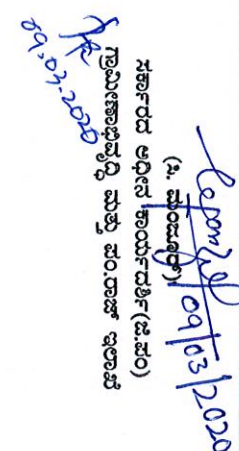 09/03/2020
(ಸಿ. ಮಂಜುಳ)
ಸರ್ಕಾರದ ಅಧೀನ ಕಾರ್ಯದರ್ಶಿ(ಜಿ.ಪಂ)
ಗ್ರಾಮೀಣಾಭಿವೃದ್ಧಿ ಮತ್ತು ಪಂ.ರಾಜ್ ಇಲಾಖೆ
09.03.2020